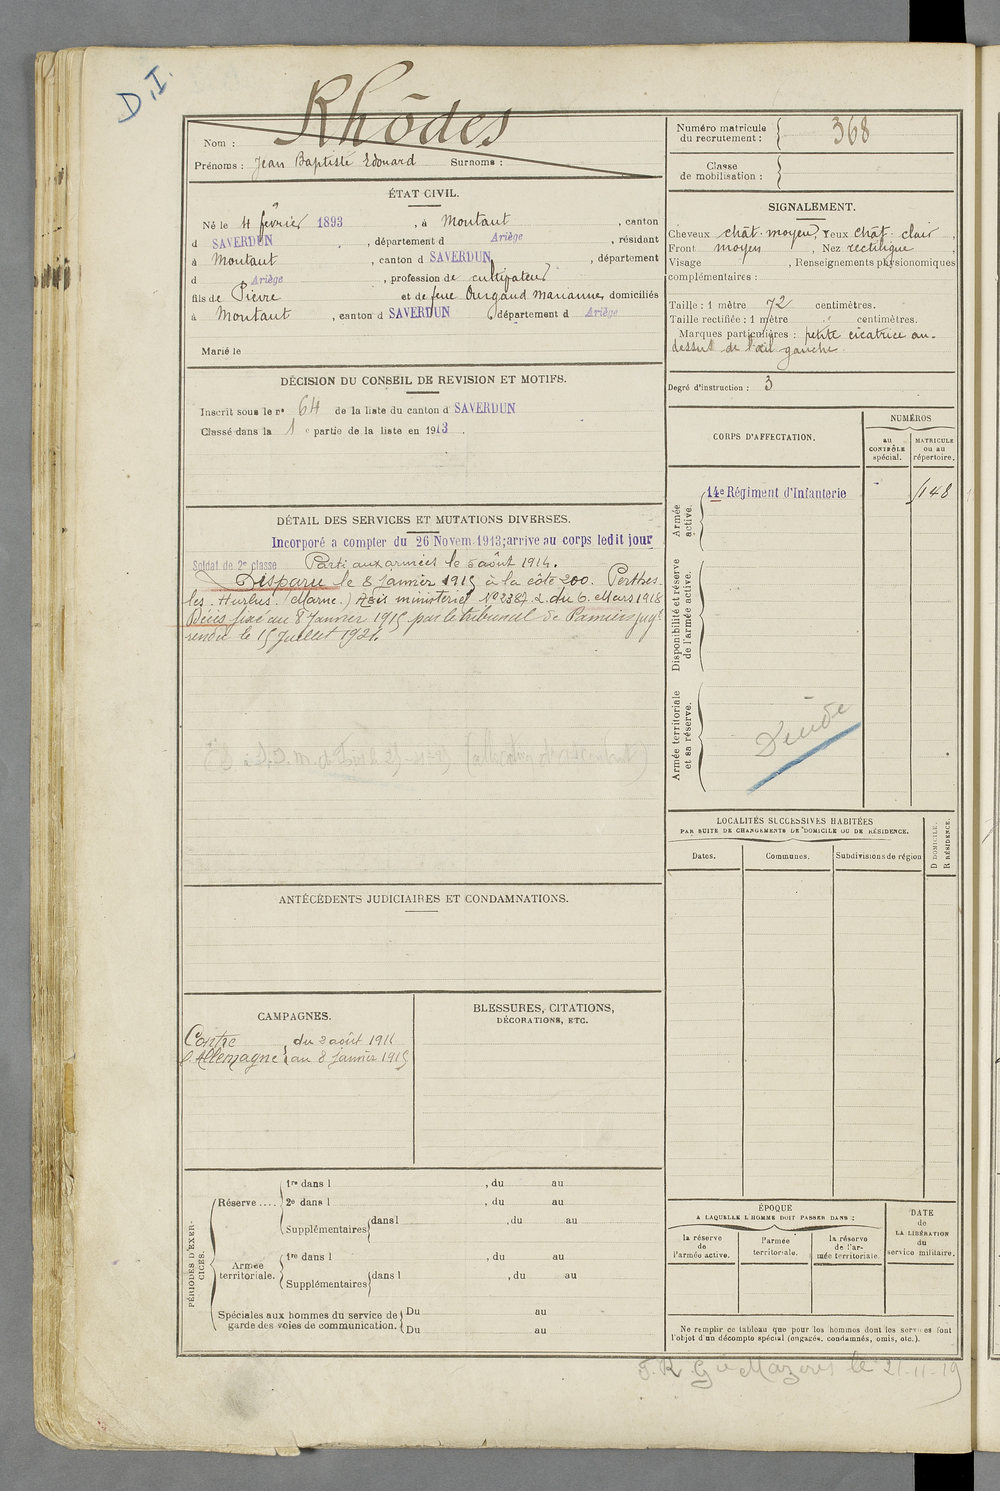 D.I.
Rhodes
Nom :
Prénoms : Jean Baptiste Edouard Surnoms :
ÉTAT CIVIL.
Né le 4 février 1893 , à Montaut , canton
d SAVERDUN , département d Ariège , résidant
à Montaut , canton d SAVERDUN , département
d Ariège , profession de cultivateur
fils de Pierre et de feue Durgaud Marianne, domiciliés
à Montaut , canton d SAVERDUN , département d Ariège
Marié le
DÉCISION DU CONSEIL DE REVISION ET MOTIFS.
Inscrit sous le n° 64 de la liste du canton d SAVERDUN
Classé dans la 1 e partie de la liste en 1913 .
DÉTAIL DES SERVICES ET MUTATIONS DIVERSES.
Incorporé a compter du 26 Novem. 1913; arrive au corps ledit jour
Soldat de 2e classe Parti aux armées le 5 août 1914.
Disparu le 8 Janvier 1915 à la côte 200. Perthes-
les-Hurlus. (Marne.) Avis ministeriel N° 2387. 2. du 6. Mars 1918
Décès fixé au 8 Janvier 1915 par le tribunal de Pamiers jugt
rendu le 15 Juillet 1921.
ANTÉCÉDENTS JUDICIAIRES ET CONDAMNATIONS.
CAMPAGNES.
Contre du 2 août 1914
l'Allemagne au 8 Janvier 1915
BLESSURES, CITATIONS,
DÉCORATIONS, ETC.
PÉRIODES D'EXER-
CICES.
Réserve ....
1re dans l , du au
2e dans l , du au
Supplémentaires dans l , du au
Armée
territoriale.
1re dans l , du au
Supplémentaires dans l , du au
Spéciales aux hommes du service de
garde des voies de communication.
Du au
Du au
Numéro matricule
du recrutement : 368
Classe
de mobilisation :
SIGNALEMENT.
Cheveux chât. moyen, Yeux chât. clair ,
Front moyen , Nez rectiligne ,
Visage , Renseignements physionomiques
complémentaires :
Taille : 1 mètre 72 centimètres.
Taille rectifiée : 1 mètre " centimètres.
Marques particulières : petite cicatrice au-
dessus de l'œil gauche.
Degré d'instruction : 3
CORPS D'AFFECTATION.
NUMÉROS
au
CONTRÔLE
spécial.
MATRICULE
ou au
répertoire.
Armée
active.
14e Régiment d'Infanterie 1148
Disponibilité et réserve
de l'armée active.
Armée territoriale
et sa réserve.
LOCALITÉS SUCCESSIVES HABITÉES
PAR SUITE DE CHANGEMENTS DE DOMICILE OU DE RÉSIDENCE.
Dates.
Communes.
Subdivisions de région
D DOMICILE.
R RÉSIDENCE.
ÉPOQUE
A LAQUELLE L'HOMME DOIT PASSER DANS :
la réserve
de
l'armée active.
l'armée
territoriale.
la réserve
de l'ar-
mée territoriale.
DATE
de
LA LIBÉRATION
du
service militaire.
Ne remplir ce tableau que pour les hommes dont les services font
l'objet d'un décompte spécial (engagés, condamnés, omis, etc.).
le 21-11-19